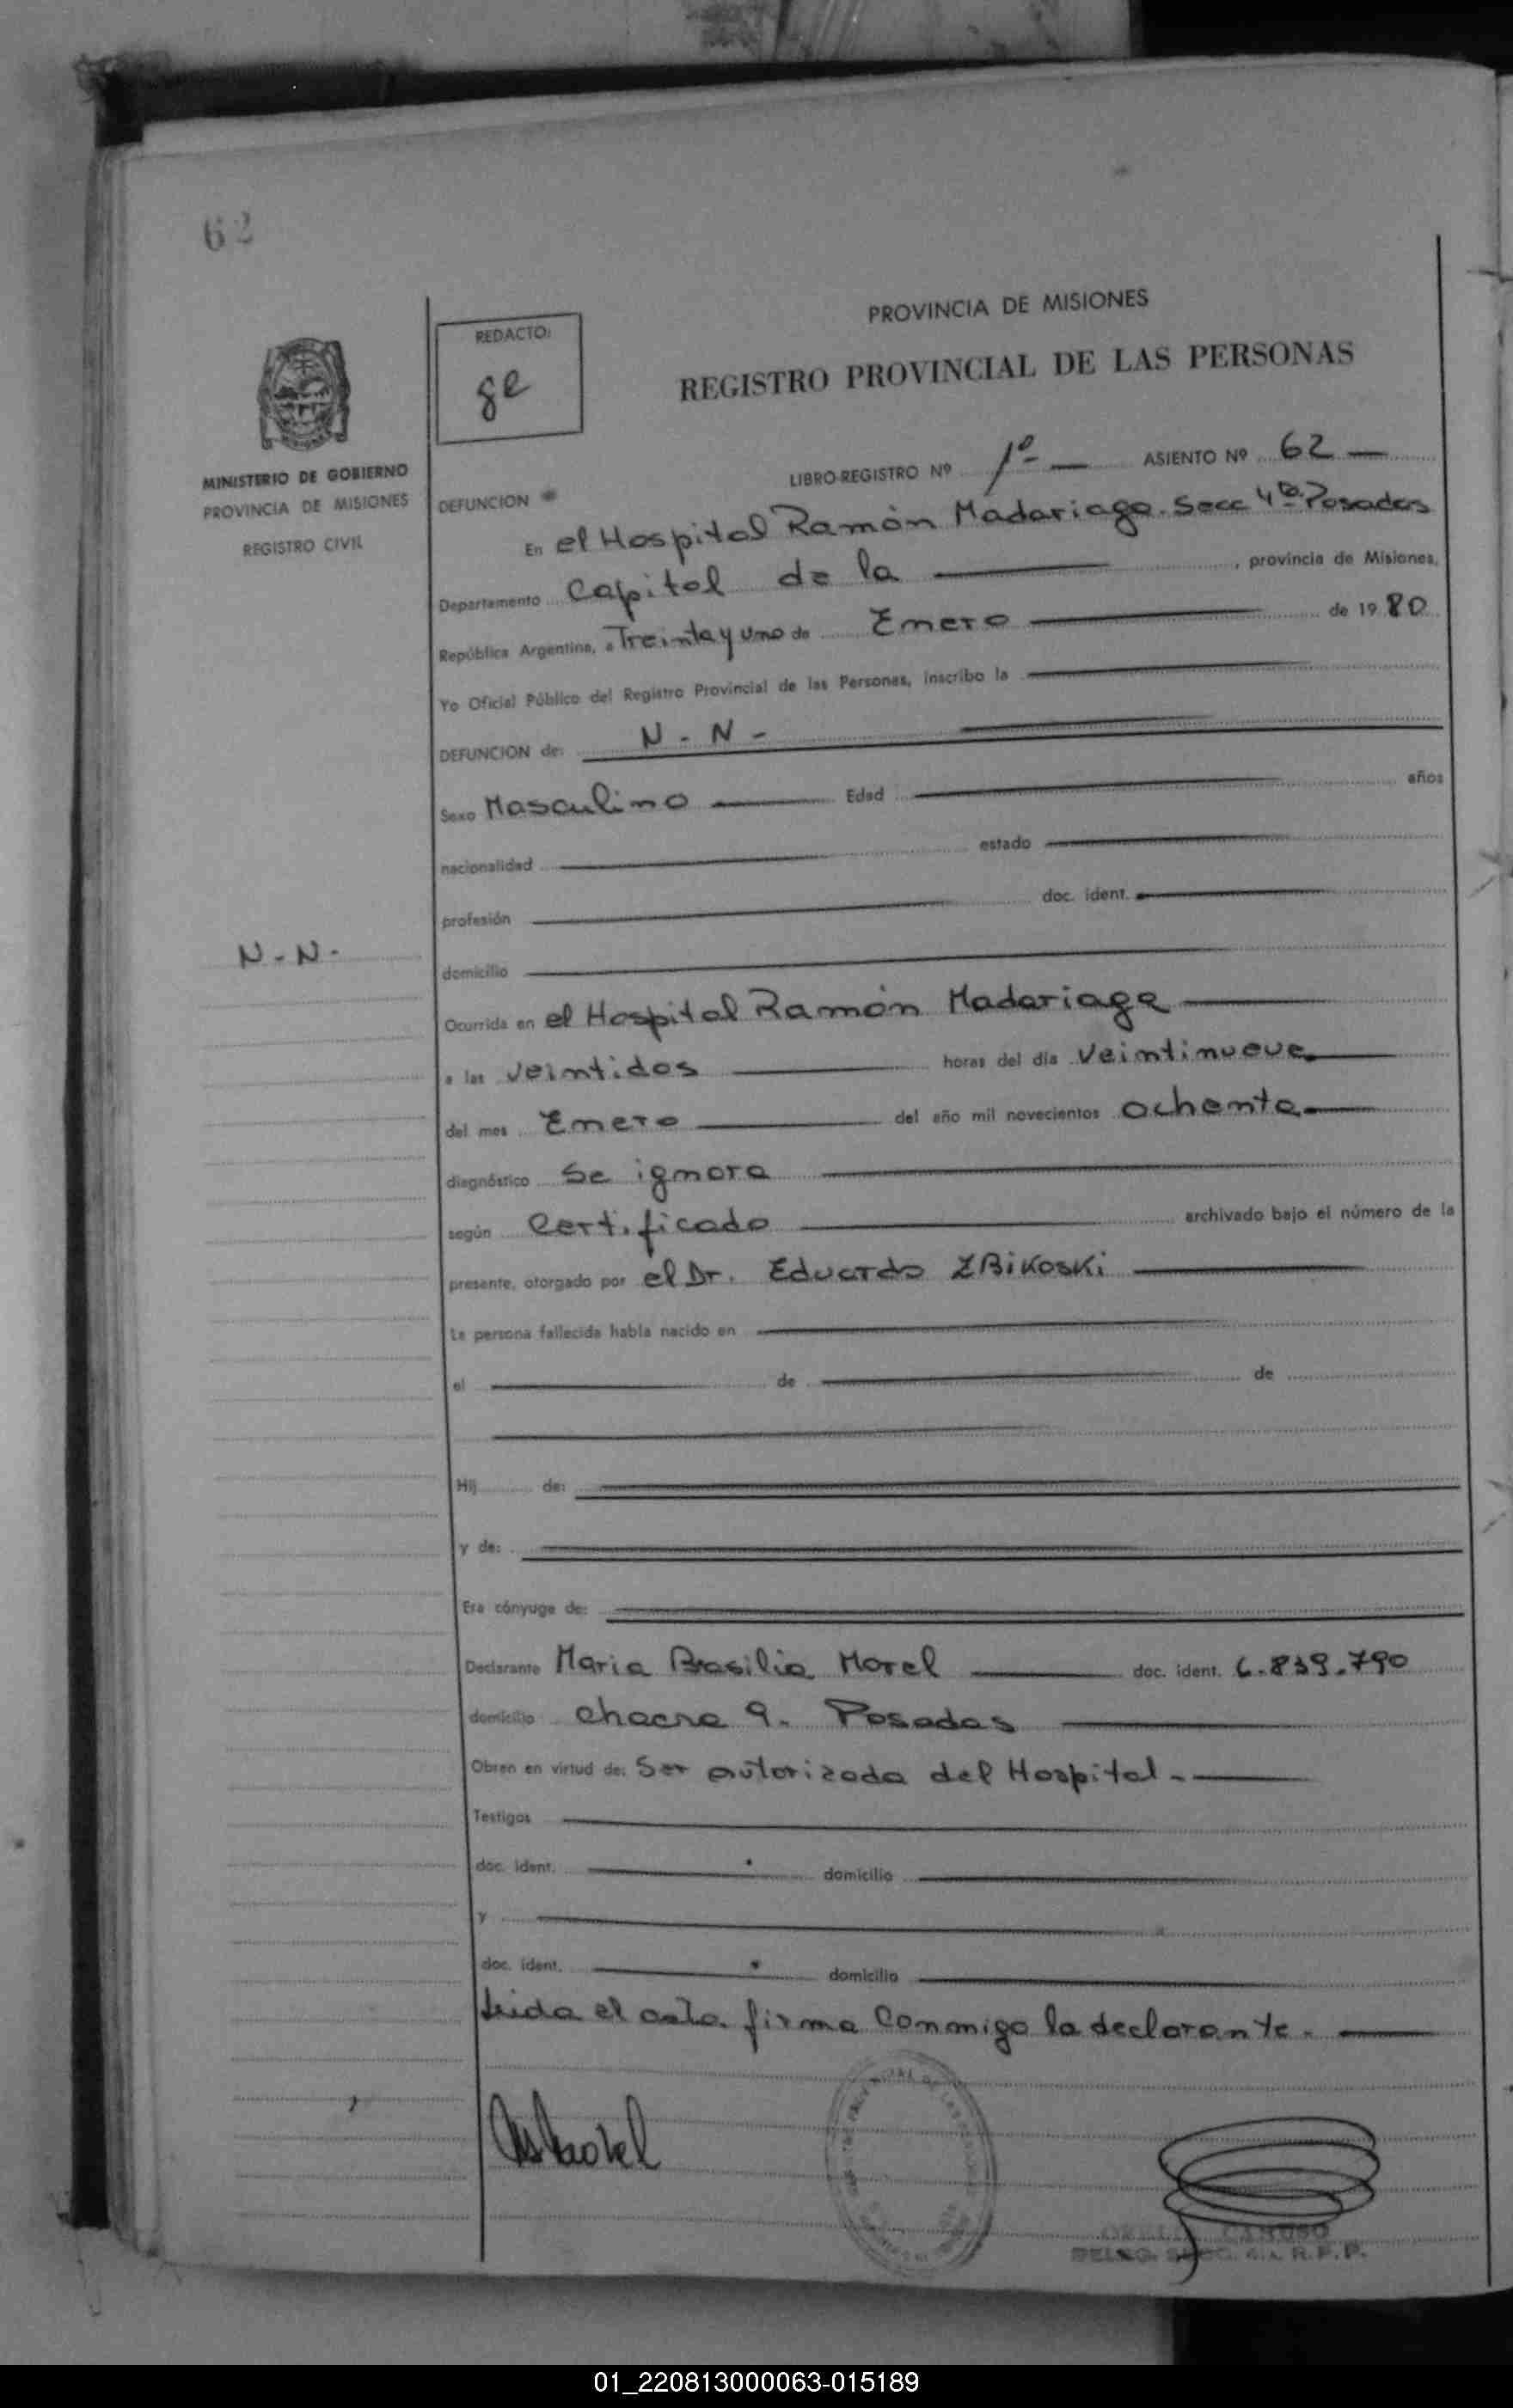 62
PROVINCIA DE MISIONES
REGISTRO PROVINCIAL DE LAS PERSONAS
REDACTO:
ge
MINISTERIO DE GOBIERNO
PROVINCIA DE MISIONES
REGISTRO CIVIL
LIBRO-REGISTRO Nº 1º — ASIENTO Nº 62 —
DEFUNCION
En el Hospital Ramón Madariaga. Secc 4ta. Posadas
Departamento Capital de la —, provincia de Misiones,
República Argentina, a Treinta y uno de Enero — de 1980
Yo Oficial Público del Registro Provincial de las Personas, inscribo la —
DEFUNCION de: N - N -
Sexo Masculino — Edad — años
nacionalidad — estado —
profesión — doc. ident. —
N - N -
domicilio —
Ocurrida en el Hospital Ramón Madariaga —
a las veintidos — horas del día veintinueve —
del mes Enero — del año mil novecientos ochenta —
diagnóstico Se ignora —
según Certificado — archivado bajo el número de la
presente, otorgado por el Dr. Eduardo ZBiKosKi —
La persona fallecida había nacido en —
el — de — de
Hij de: —
y de: —
Era cónyuge de: —
Declarante Maria Brasilia Morel — doc. ident. 6.839.790
domicilio chacra 9. Posadas —
Obran en virtud de: Ser autorizada del Hospital. —
Testigos —
doc. ident. — domicilio —
y —
doc. ident. — domicilio —
Leida el acta. firma Conmigo la declarante. —
CARUSO
DELEG. SECC. 4a. R.P.P.
01_220813000063-015189